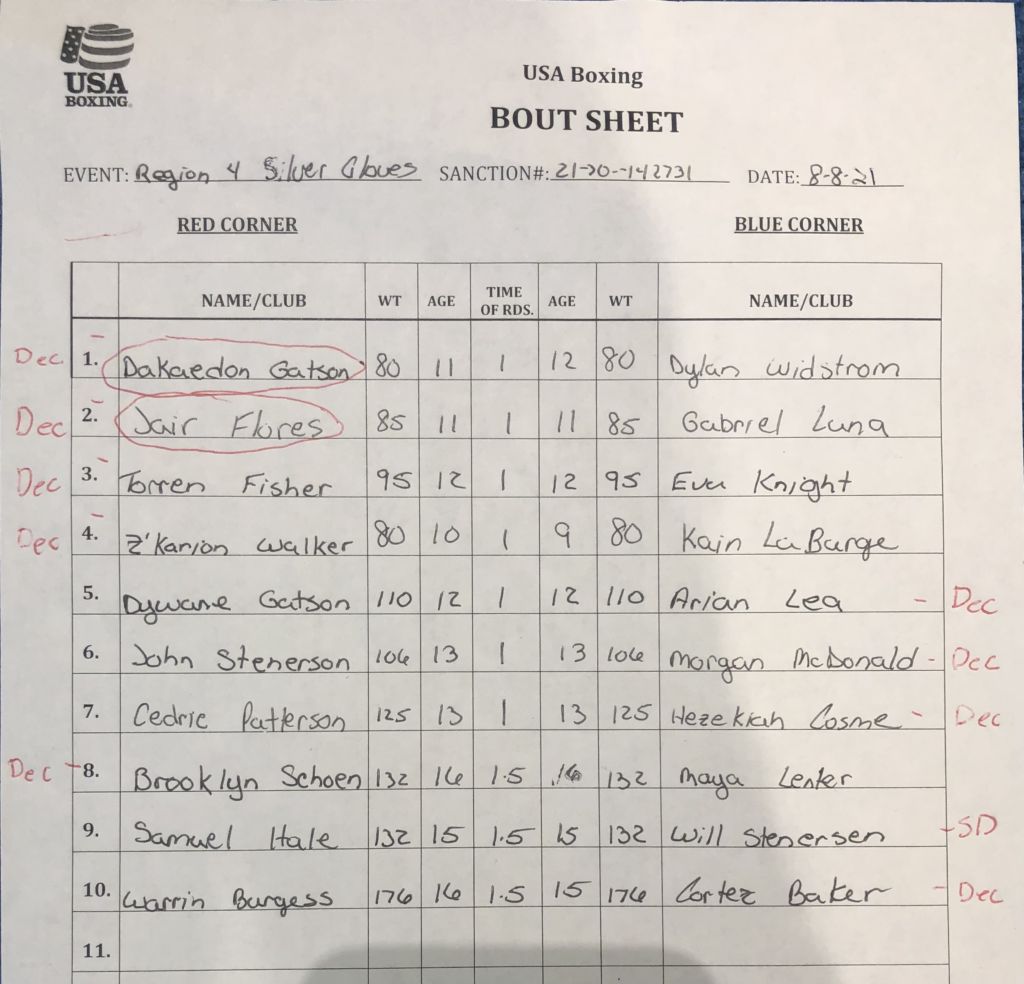 USA
BOXING
USA Boxing
BOUT SHEET
EVENT: Region 4 Silver Gloves SANCTION#: 21-20--142731 DATE: 8-8-21
RED CORNER BLUE CORNER
NAME/CLUB WT AGE TIME OF RDS. AGE WT NAME/CLUB
Dec 1. Dakaedon Gatson 80 11 1 12 80 Dylan Widstrom
Dec 2. Jair Flores 85 11 1 11 85 Gabriel Luna
Dec 3. Torren Fisher 95 12 1 12 95 Eva Knight
Dec 4. Z'Karion Walker 80 10 1 9 80 Kain LaBarge
5. Dywane Gatson 110 12 1 12 110 Arian Lea - Dec
6. John Stenerson 106 13 1 13 106 Morgan McDonald - Dec
7. Cedric Patterson 125 13 1 13 125 Hezekiah Cosme - Dec
Dec - 8. Brooklyn Schoen 132 16 1.5 16 132 Maya Lenker
9. Samuel Hale 132 15 1.5 15 132 Will Stenersen - SD
10. Warrin Burgess 176 16 1.5 15 176 Cortez Baker - Dec
11.